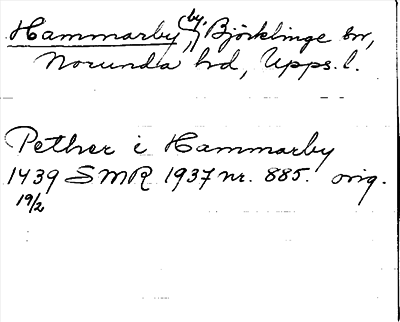 Hammarby, by, Björklinge sn,
Norunda hd, Upps. l.
Pether i Hammarby
1439 SMR 1937 nr. 885. orig.
19/2